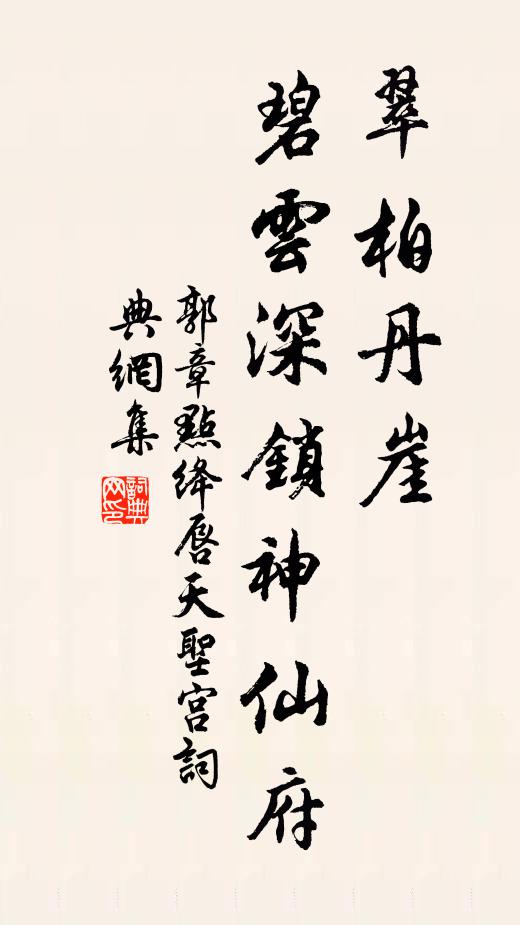 翠柏丹崖
碧雲深鎖神仙府
郭章點绛唇天聖宫詞
典網集
詞典
网印